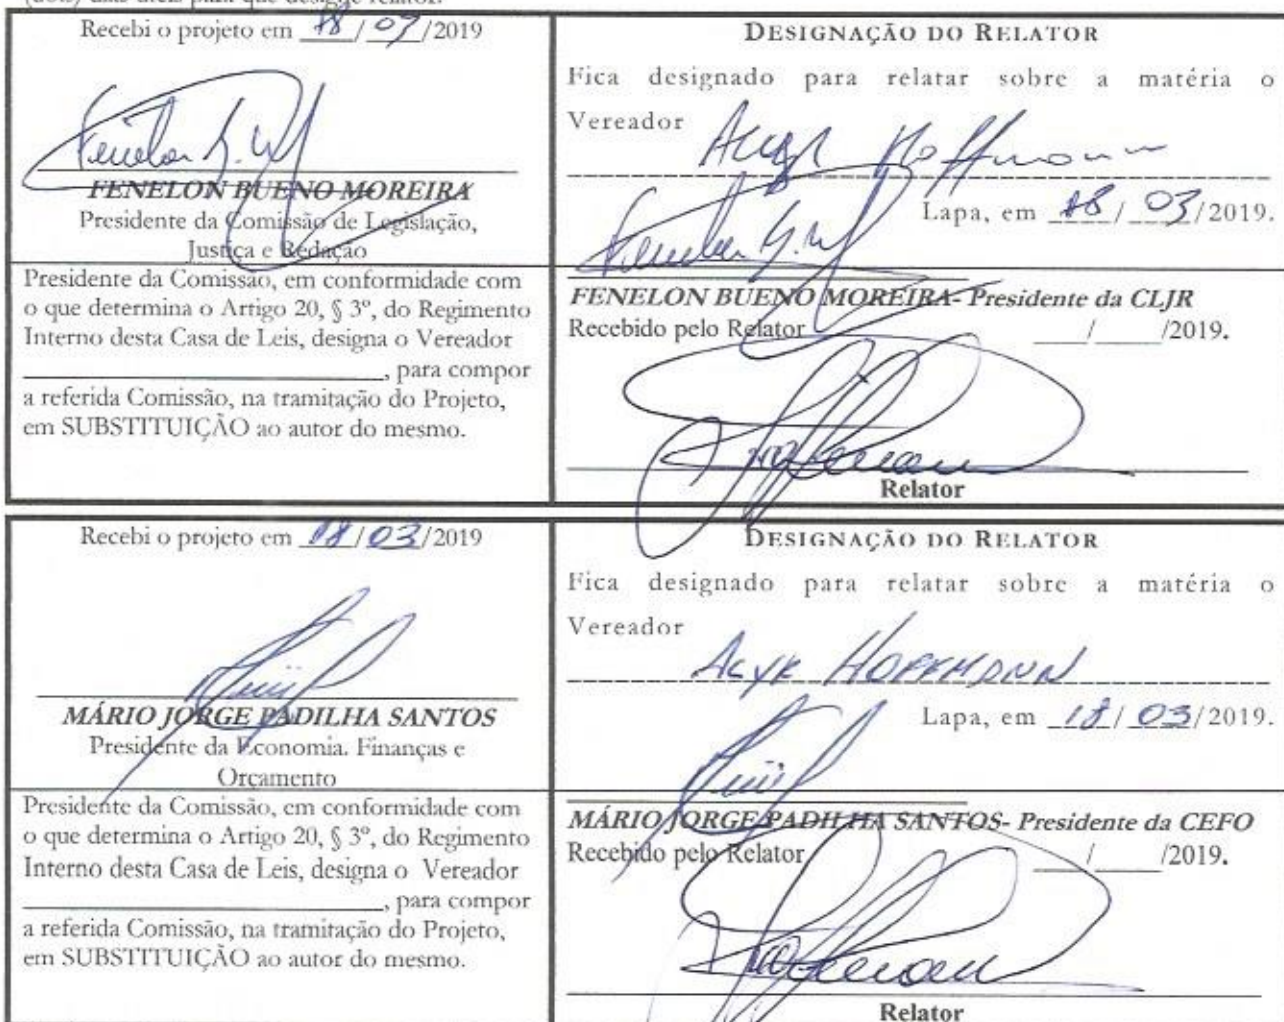 (dois) dias úteis para que designe relator.
Recebi o projeto em 18/03/2019
FENELON BUENO MOREIRA
Presidente da Comissão de Legislação,
Justiça e Redação
Presidente da Comissão, em conformidade com
o que determina o Artigo 20, § 3º, do Regimento
Interno desta Casa de Leis, designa o Vereador
____________, para compor
a referida Comissão, na tramitação do Projeto,
em SUBSTITUIÇÃO ao autor do mesmo.
DESIGNAÇÃO DO RELATOR
Fica designado para relatar sobre a matéria o
Vereador Hoffmann
Lapa, em 18/03/2019.
FENELON BUENO MOREIRA- Presidente da CLJR
Recebido pelo Relator ____/____/2019.
Relator
Recebi o projeto em 18/03/2019
MÁRIO JORGE PADILHA SANTOS
Presidente da Economia. Finanças e
Orçamento
Presidente da Comissão, em conformidade com
o que determina o Artigo 20, § 3º, do Regimento
Interno desta Casa de Leis, designa o Vereador
____________, para compor
a referida Comissão, na tramitação do Projeto,
em SUBSTITUIÇÃO ao autor do mesmo.
DESIGNAÇÃO DO RELATOR
Fica designado para relatar sobre a matéria o
Vereador
HOFFMANN
Lapa, em 18/03/2019.
MÁRIO JORGE PADILHA SANTOS- Presidente da CEFO
Recebido pelo Relator ____/____/2019.
Relator